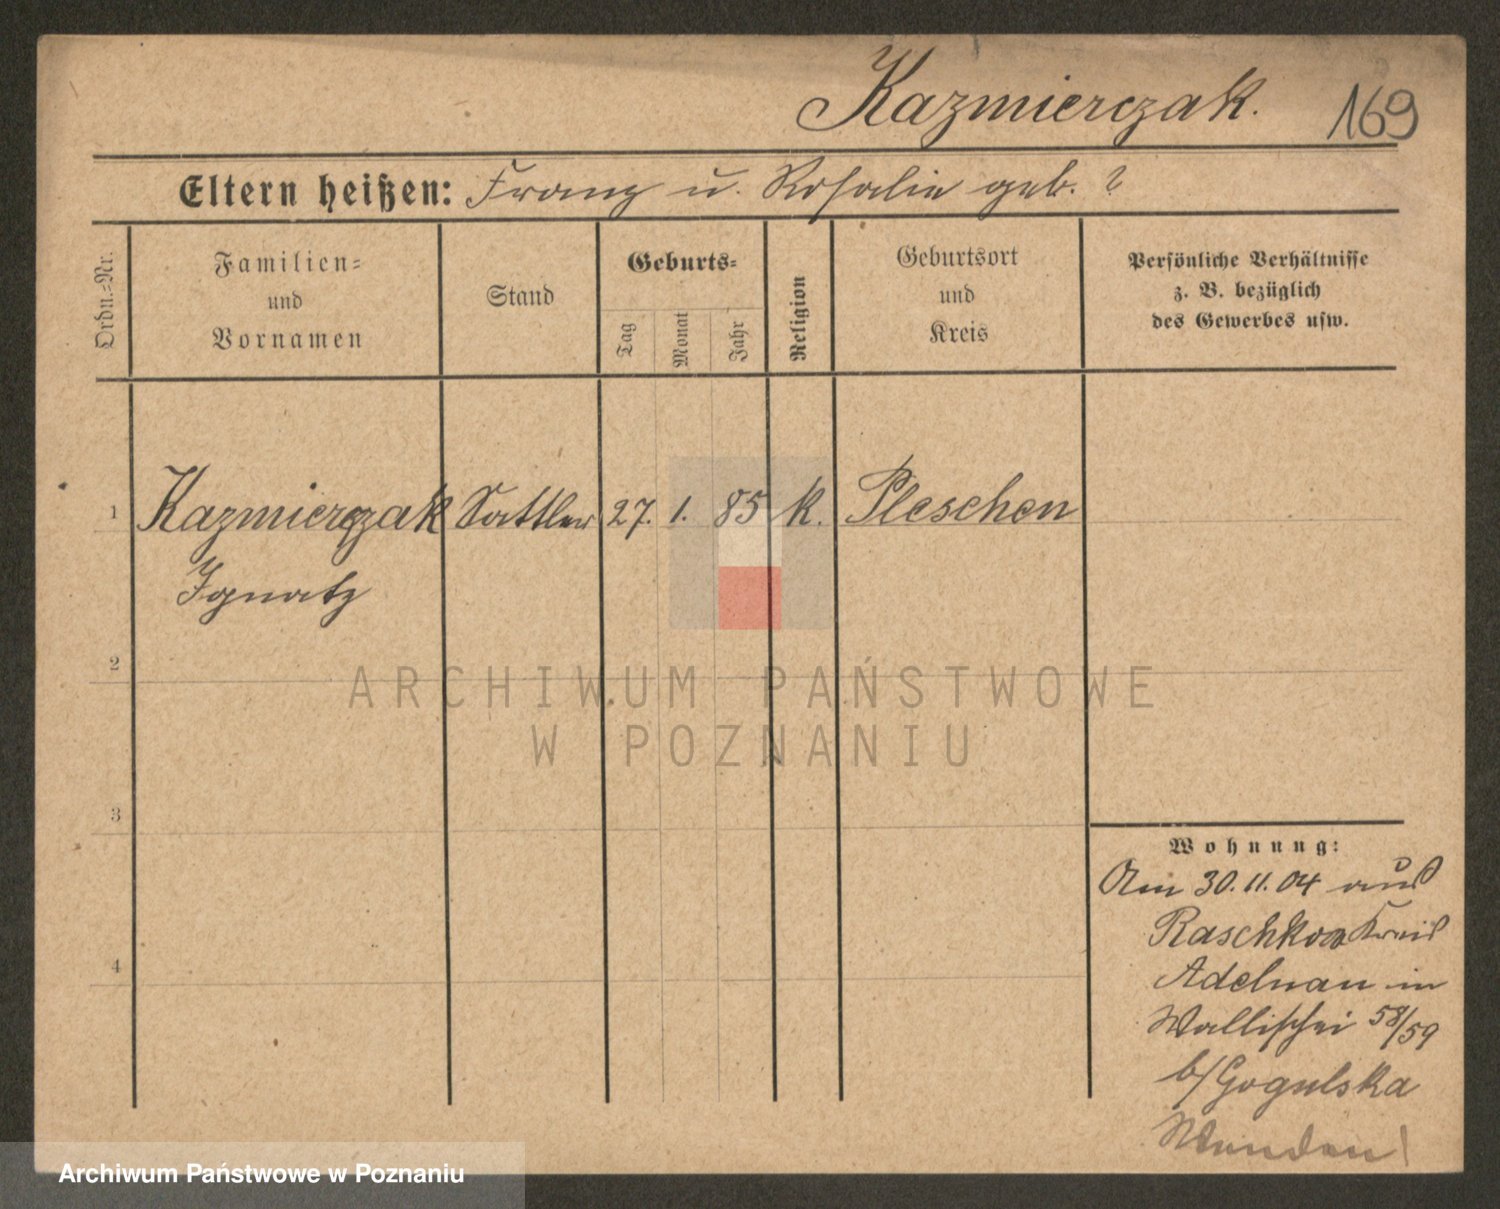 Kazmierczak. 169
Eltern heißen: Franz u. Rosalie geb. ?
Ordn.-Nr.
Familien-
und
Vornamen
Stand
Geburts-
Tag
Monat
Jahr
Religion
Geburtsort
und
Kreis
Persönliche Verhältnisse
z. B. bezüglich
des Gewerbes usw.
1 Kazmierczak Sattler 27. 1. 85 k. Pleschen
Ignatz
2
ARCHIWUM PAŃSTWOWE
W POZNANIU
3
4
Wohnung:
Am 30.11.04 aus
Raschkow Kreis
Adelnau in
Wallischei 58/59
b/Gogulska
Archiwum Państwowe w Poznaniu